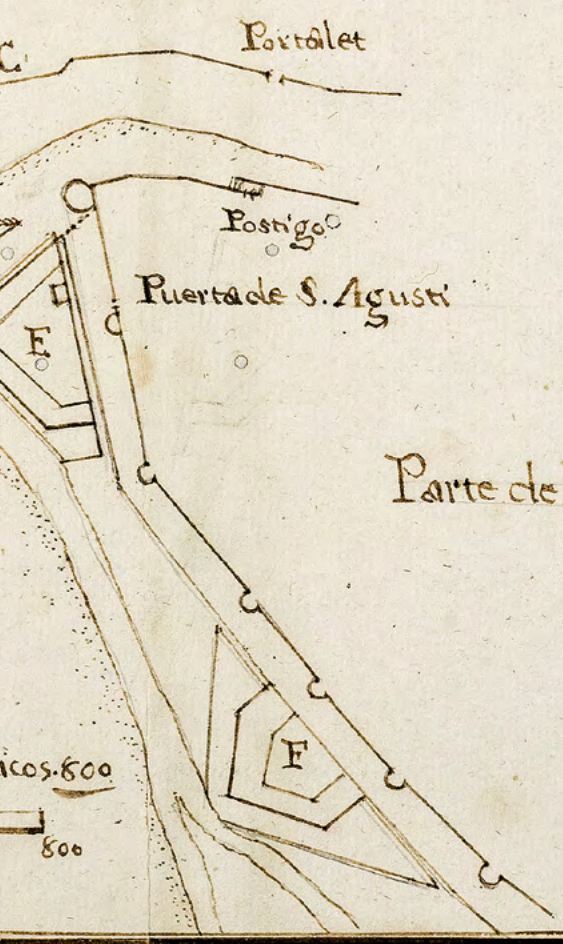 C.
Portalet
Postigo
Puerta de S. Agusti
E
Parte de
F
icos. 800
800